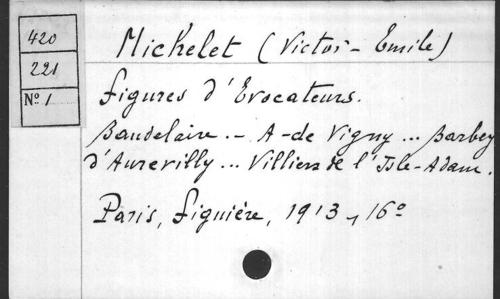 420
221
Nº 1
Michelet (Victor-Émile)
figures d'Evocateurs.
Baudelaire.- A-de Vigny... Barbey
d'Aurevilly... Villiers de l'Isle-Adam.
Paris, figuière, 1913, 16º